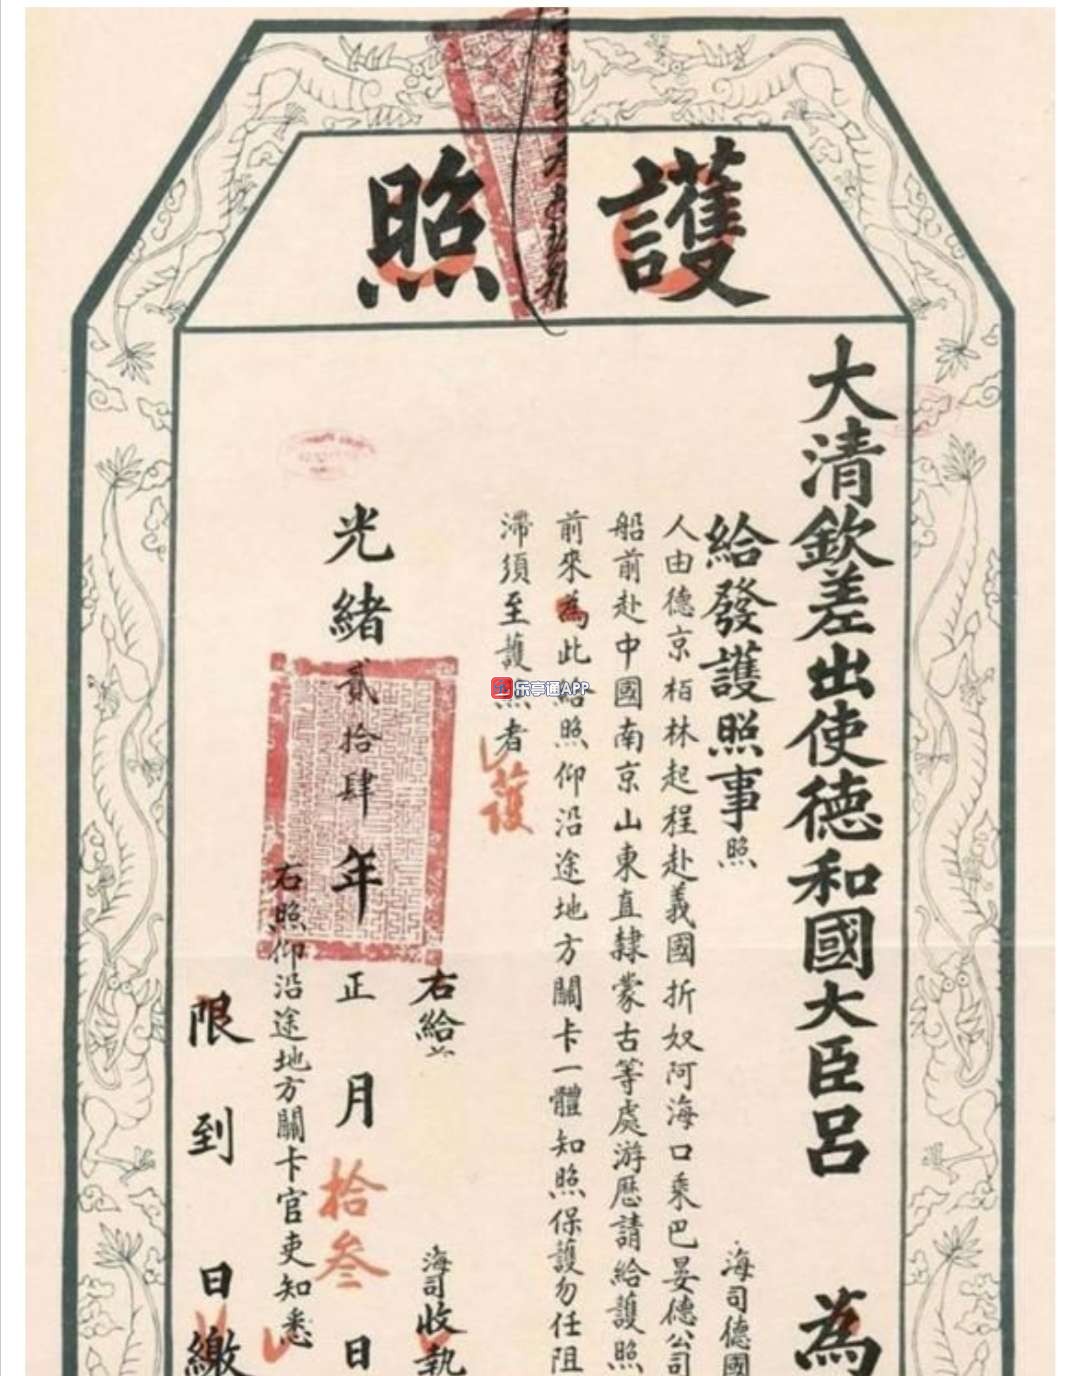 護照
大清欽差出使德和國大臣呂 為
給發護照事照 海司德國
人由德京柏林起程赴義國折奴阿海口乘巴晏德公司
船前赴中國南京山東直隸蒙古等處游歷請給護照
前來為此給照仰沿途地方關卡一體知照保護勿任阻
滯須至護照者
護
右給 海司收執
光緒貳拾肆年正月拾叁日
右照仰沿途地方關卡官吏知悉
限到 日繳
乐享通APP